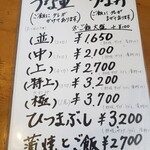 うな重
うな丼
(ご飯に タレが かけてあります)
ご飯大盛 + ¥100
(並) ¥1650
(中) ¥2,100
(上) ¥2,700
(特上) ¥3,200
(極) ¥3,700
ひつまぶし ¥3200
蒲焼とご飯 ¥2700